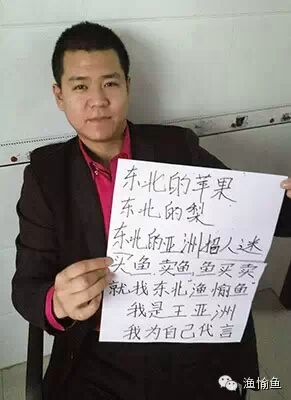 东北的苹果
东北的梨
东北的亚洲招人迷
买鱼 卖鱼 鱼买卖
就找东北"渔愉鱼"
我是王亚洲
我为自己代言
渔愉鱼